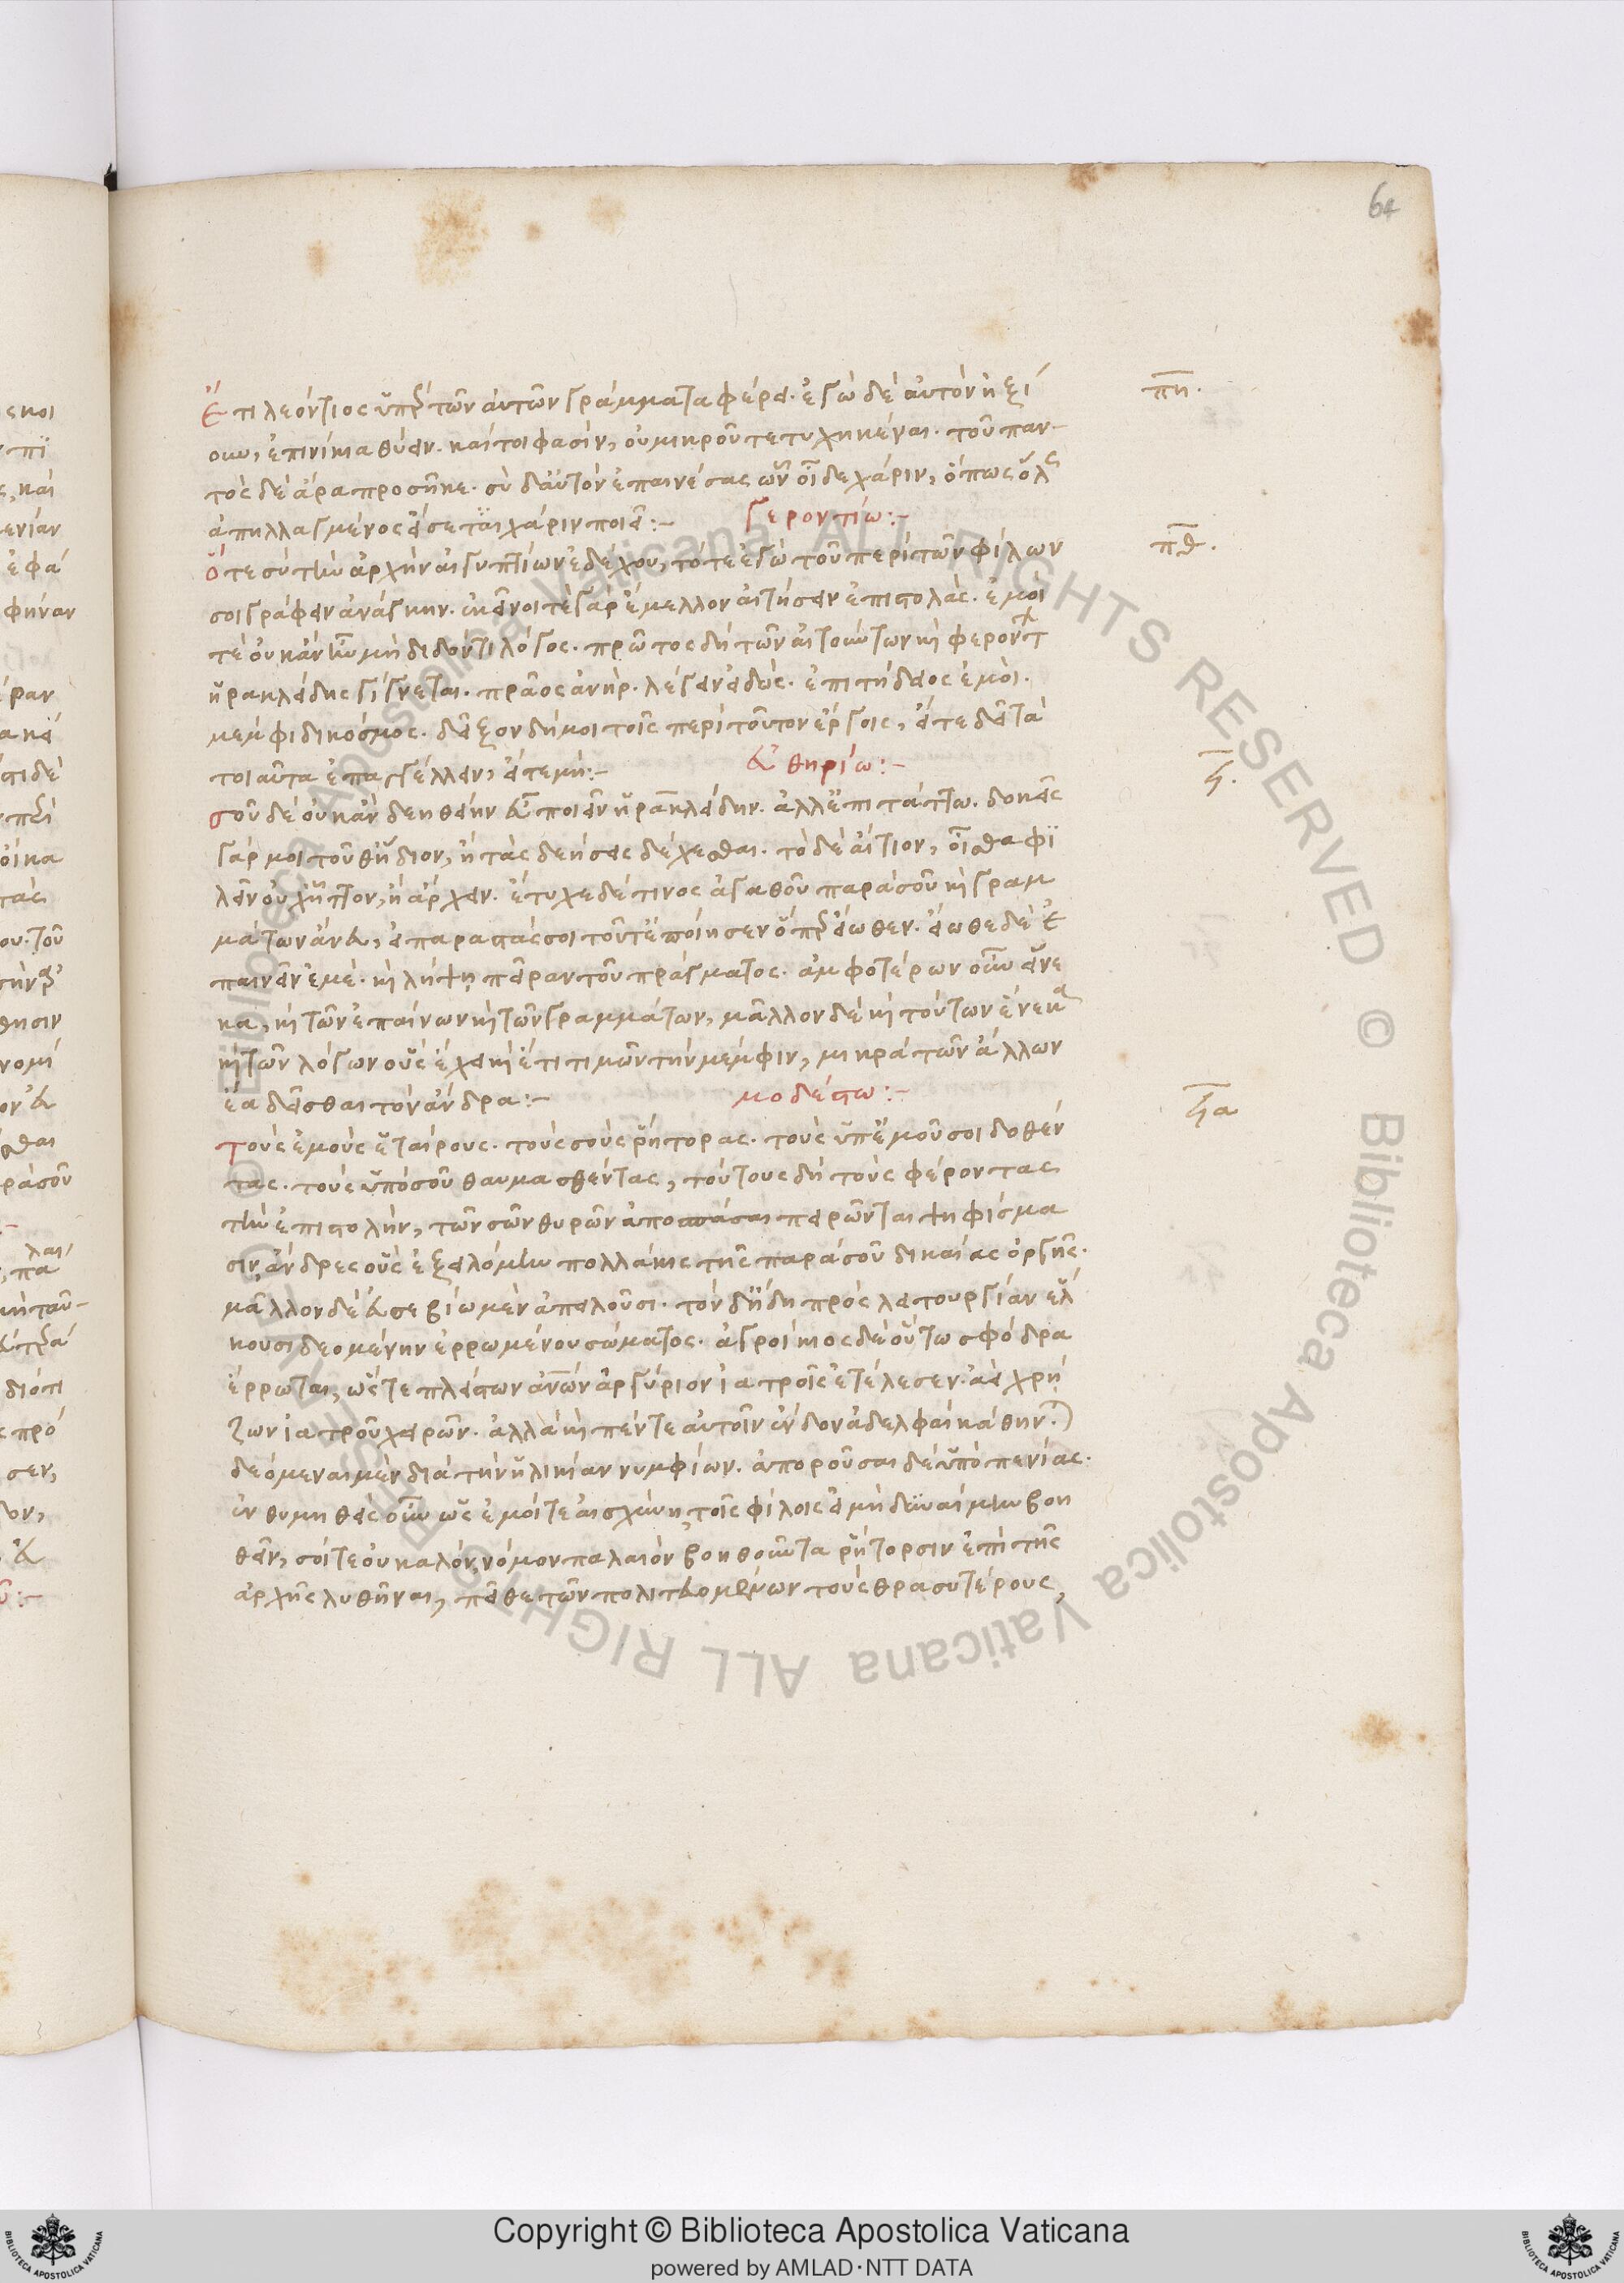 64
Ἔτι λεόντιος ὑπὲρ τῶν αὐτῶν γράμματα φέρει. ἐγὼ δὲ αὐτὸν ἠξί πη.
ουν, ἐπινίκια θύειν. καίτοι φασὶν, οὐ μικροῦ τετυχηκέναι. τοῦ παν-
τὸς δὲ ἄρα προσῆκε. σὺ δ' αὐτὸν ἐπαινέσας ὧν οἶδε χάριν, ὅπως ὅλως
ἀπηλλαγμένος εἴσεται χάριν ποίει:-
γεροντίω:-
ὅτε σὺ τὴν ἀρχὴν αἰγυπτίων ἐδέχου, τότε ἐγὼ τοῦ περὶ τῶν φίλων πθ.
σοι γράφειν ἀνάγκην. ἐκεῖνοί τε γὰρ ἔμελλον αἰτήσειν ἐπιστολὰς. ἐμοί
τε οὐκ ἂν ἦν μὴ διδόντι λόγος. πρῶτος δὴ τῶν αἰτούντων κ φερόντων
ἡρακλείδης γίγνεται. πρᾶος ἀνὴρ. λέγειν εἰδὼς. ἐπιτήδειος ἐμοὶ.
μέμφιδι κόσμος. δεῖξον δή μοι τοῖς περὶ τοῦτον ἔργοις, εἴτε δεῖ τὰ
τοιαῦτα ἐπαγγέλλειν, εἴτε μή:-
εὐθηρίω:-
ϟ.
σοῦ δὲ οὐκ ἂν δεηθείην εὖ ποιεῖν ἡρακλείδην. ἀλλ' ἐπιτάττω. δοκεῖς
γάρ μοι τοῦθ' ἥδιον, ἢ τὰς δεήσεις δέχεσθαι. τὸ δὲ αἴτιον, οἶσθα φι
λεῖν οὐχ ἧττον, ἢ ἄρχειν. ἔτυχε δέ τινος ἀγαθοῦ παρὰ σοῦ κ γραμ
μάτων ἄνευ, ἃ παραστάς σοι τοῦτ' ἐποίησεν ὅπερ εἴωθεν. εἴωθε δὲ ἐ
παινεῖν ἐμέ. κ λήψῃ πεῖραν τοῦ πράγματος. ἀμφοτέρων οὖν εἵνε
κα, κ τῶν ἐπαίνων κ τῶν γραμμάτων, μᾶλλον δὲ κ τούτων ἕνεκα
κ τῶν λόγων οὓς ἔχει κ ἔτι τιμῶν τὴν μέμφιν, μικρὰ τῶν ἄλλων
ἔα δεῖσθαι τὸν ἄνδρα:-
μοδέστω:-
ϟα
τοὺς ἐμοὺς ἑταίρους. τοὺς σοὺς ῥήτορας. τοὺς ὑπ' ἐμοῦ σοι δοθέν
τας. τοὺς ὑπὸ σοῦ θαυμασθέντας, τούτους δὴ τοὺς φέροντας
τὴν ἐπιστολὴν, τῶν σῶν θυρῶν ἀποσπάσαι πειρῶνται ψηφίσμα
σιν, ἄνδρες οὓς ἐξειλόμην πολλάκις τῆς παρὰ σοῦ δικαίας ὀργῆς.
μᾶλλον δὲ εὐσεβίω μὲν ἀπειλοῦσι. τὸν δ' ἤδη πρὸς λειτουργίαν ἕλ
κουσι δεομένην ἐρρωμένου σώματος. ἀγροίκιος δὲ οὕτω σφόδρα
ἔρρωται, ὥστε πλεῖστον ἀνθρώπων ἀργύριον ἰατροῖς ἐτέλεσεν. ἀεὶ χρῄ
ζων ἰατροῦ χειρῶν. ἀλλὰ κ πέντε αὐτοῖν ἔνδον ἀδελφαὶ κάθηνται
δεόμεναι μὲν διὰ τὴν ἡλικίαν νυμφίων. ἀποροῦσαι δὲ ὑπὸ πενίας.
ἐνθυμηθεὶς οὖν ὡς ἐμοί τε αἰσχύνη τοῖς φίλοις εἰ μὴ δυναίμην βοη
θεῖν, σοί τε οὐ καλόν, νόμον παλαιὸν βοηθοῦντα ῥήτορσιν ἐπὶ τῆς
ἀρχῆς λυθῆναι, πεῖθε τῶν πολιτευομένων τοὺς θρασυτέρους,
Copyright © Biblioteca Apostolica Vaticana
powered by AMLAD·NTT DATA